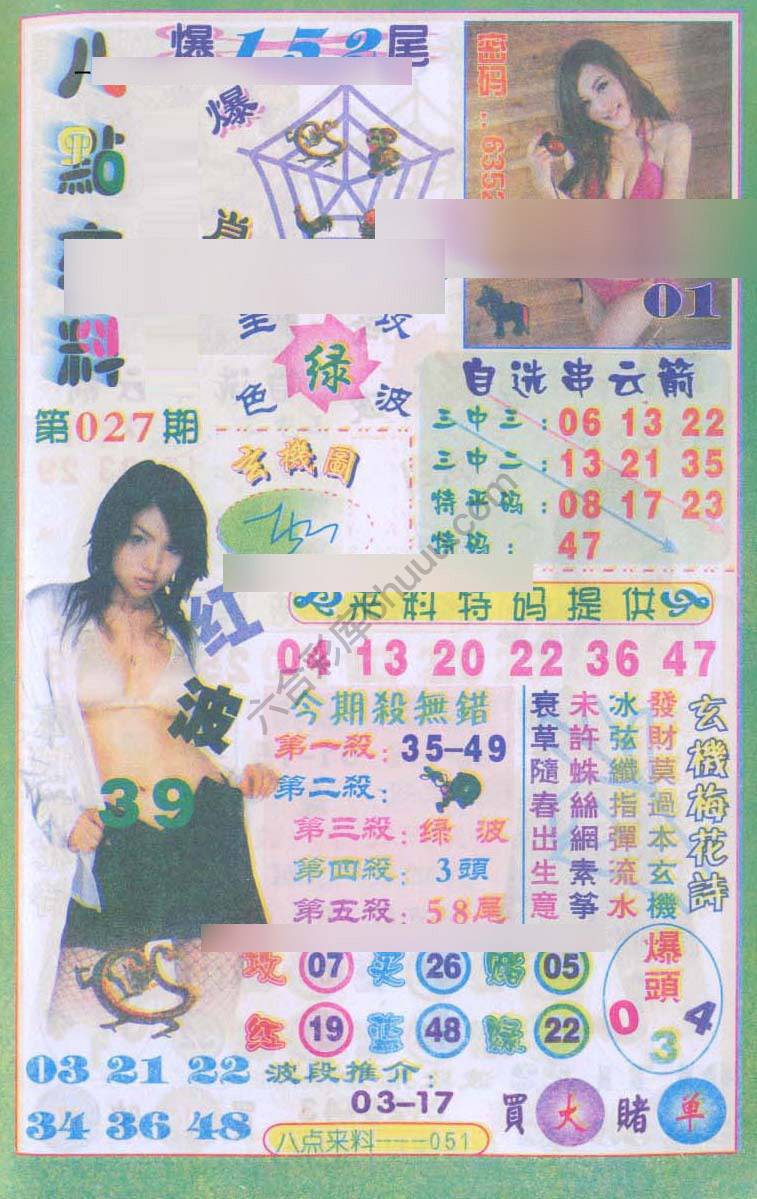 爆152尾
八點來料
密码:6352
爆
肖
01
全攻
绿
色波
第027期
自选串云箭
三中三:06 13 22
三中二:13 21 35
特平码:08 17 23
特码:47
玄機圖
來料特码提供
04 13 20 22 36 47
红波
39
今期殺無錯
第一殺:35-49
第二殺:
第三殺:绿波
第四殺:3頭
第五殺:58尾
玄機梅花詩
發財莫過本玄機
冰弦纖指彈流水
未許蛛絲網素筝
衰草隨春出生意
攻 07 买 26 赌 05
红 19 蓝 48 绿 22
爆頭
0 3 4
03 21 22
34 36 48
波段推介:
03-17
買大賭单
八点来料----051